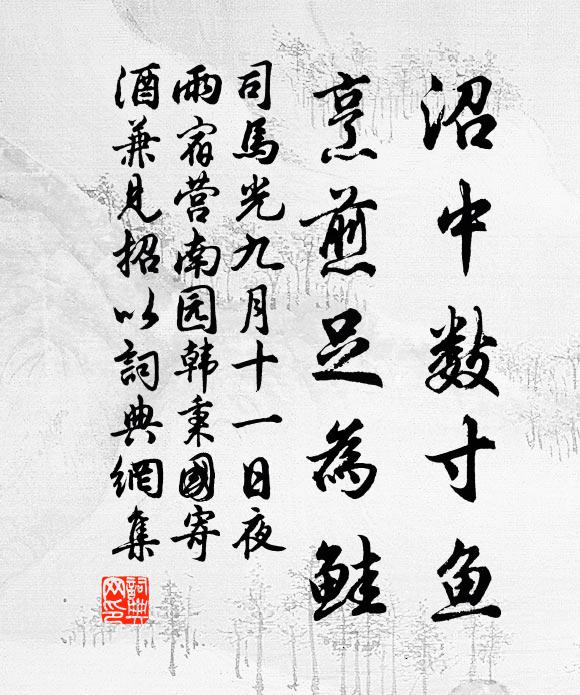 沼中数寸鱼
烹煎足為鲑
司馬光九月十一日夜
雨宿营南园韩秉國寄
酒兼見招以詞典網集
詞典
网印